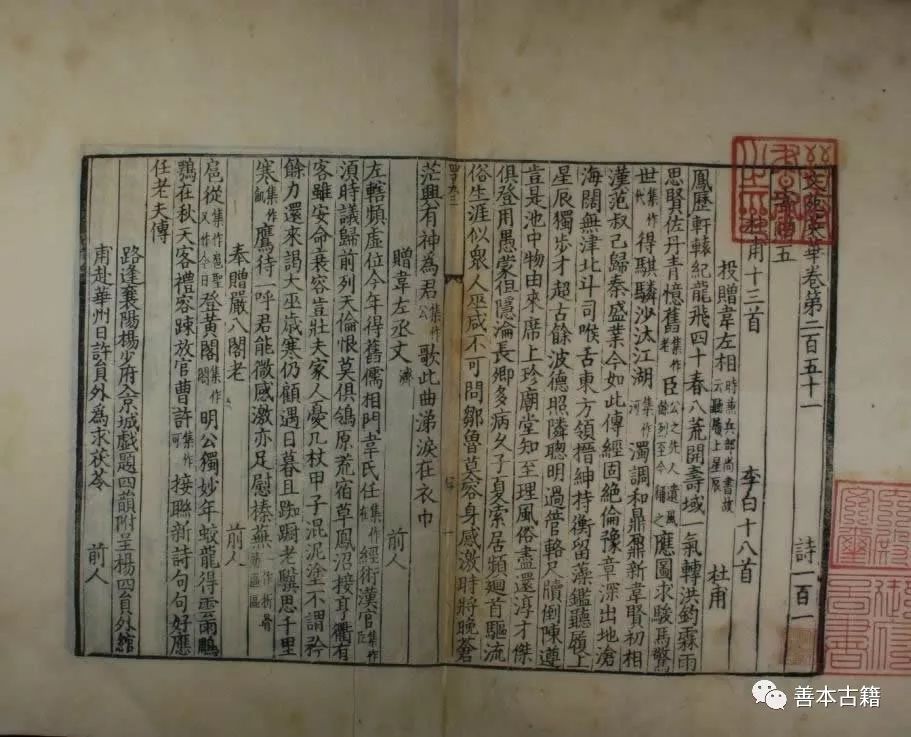 文苑英華卷第二百五十一 詩一百一
五
杜甫十三首 李白十八首
投贈韋左相時兼兵部尚書故云聽履上星辰 杜甫
鳳歷軒轅紀龍飛四十春八荒開壽域一氣轉洪鈞霖雨
思賢佐丹青憶舊集作老臣公之先人遺風餘烈至今稱之應圖求駿馬驚
世集作代得騏驎沙汰江湖集作河濁調和鼎鼐新韋賢初相
漢范叔已歸秦盛業今如此傳經固絶倫豫章深出地滄
海闊無津北斗司喉舌東方領搢紳持衡留藻鑑聽履上
星辰獨步才超古餘波德照隣聰明過管輅尺牘倒陳遵
豈是池中物由來席上珍廟堂知至理風俗盡還淳才傑
俱登用愚蒙但隱淪長卿多病久子夏索居頻廻首驅流
俗生涯似衆人巫咸不可問鄒魯莫容身感激時將晚蒼
茫興有神為君集作公歌此曲涕淚在衣巾
贈韋左丞文濟 前人
左轄頻虛位今年得舊儒相門韋氏任集作在經術漢官集作臣
湏時議歸前列天倫恨莫俱鴒原荒宿草鳳沼接亨衢有
客雖安命衰容豈壯夫家人憂几杖甲子混泥塗不謂矜
餘力還來謁大巫歲寒仍顧遇日暮且踟蹰老驥思千里
寒集作飢鷹待一呼君能微感激亦足慰榛蕪
奉贈嚴八閣老 前人
扈從集作扈聖又作今日登黃閣集作閤明公獨妙年蛟龍得雲雨鵰
鶚在秋天客禮容踈放官曹許集作可接聯新詩句句好應
任老夫傳
路逢襄陽楊少府入京城戲題四韻附呈楊四員外綰
甫赴華州日許員外為求茯苓 前人
善本古籍